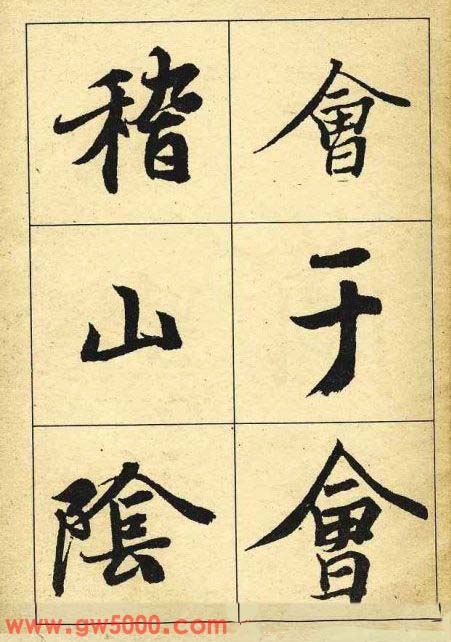 會于會
稽山陰
www.gw5000.com